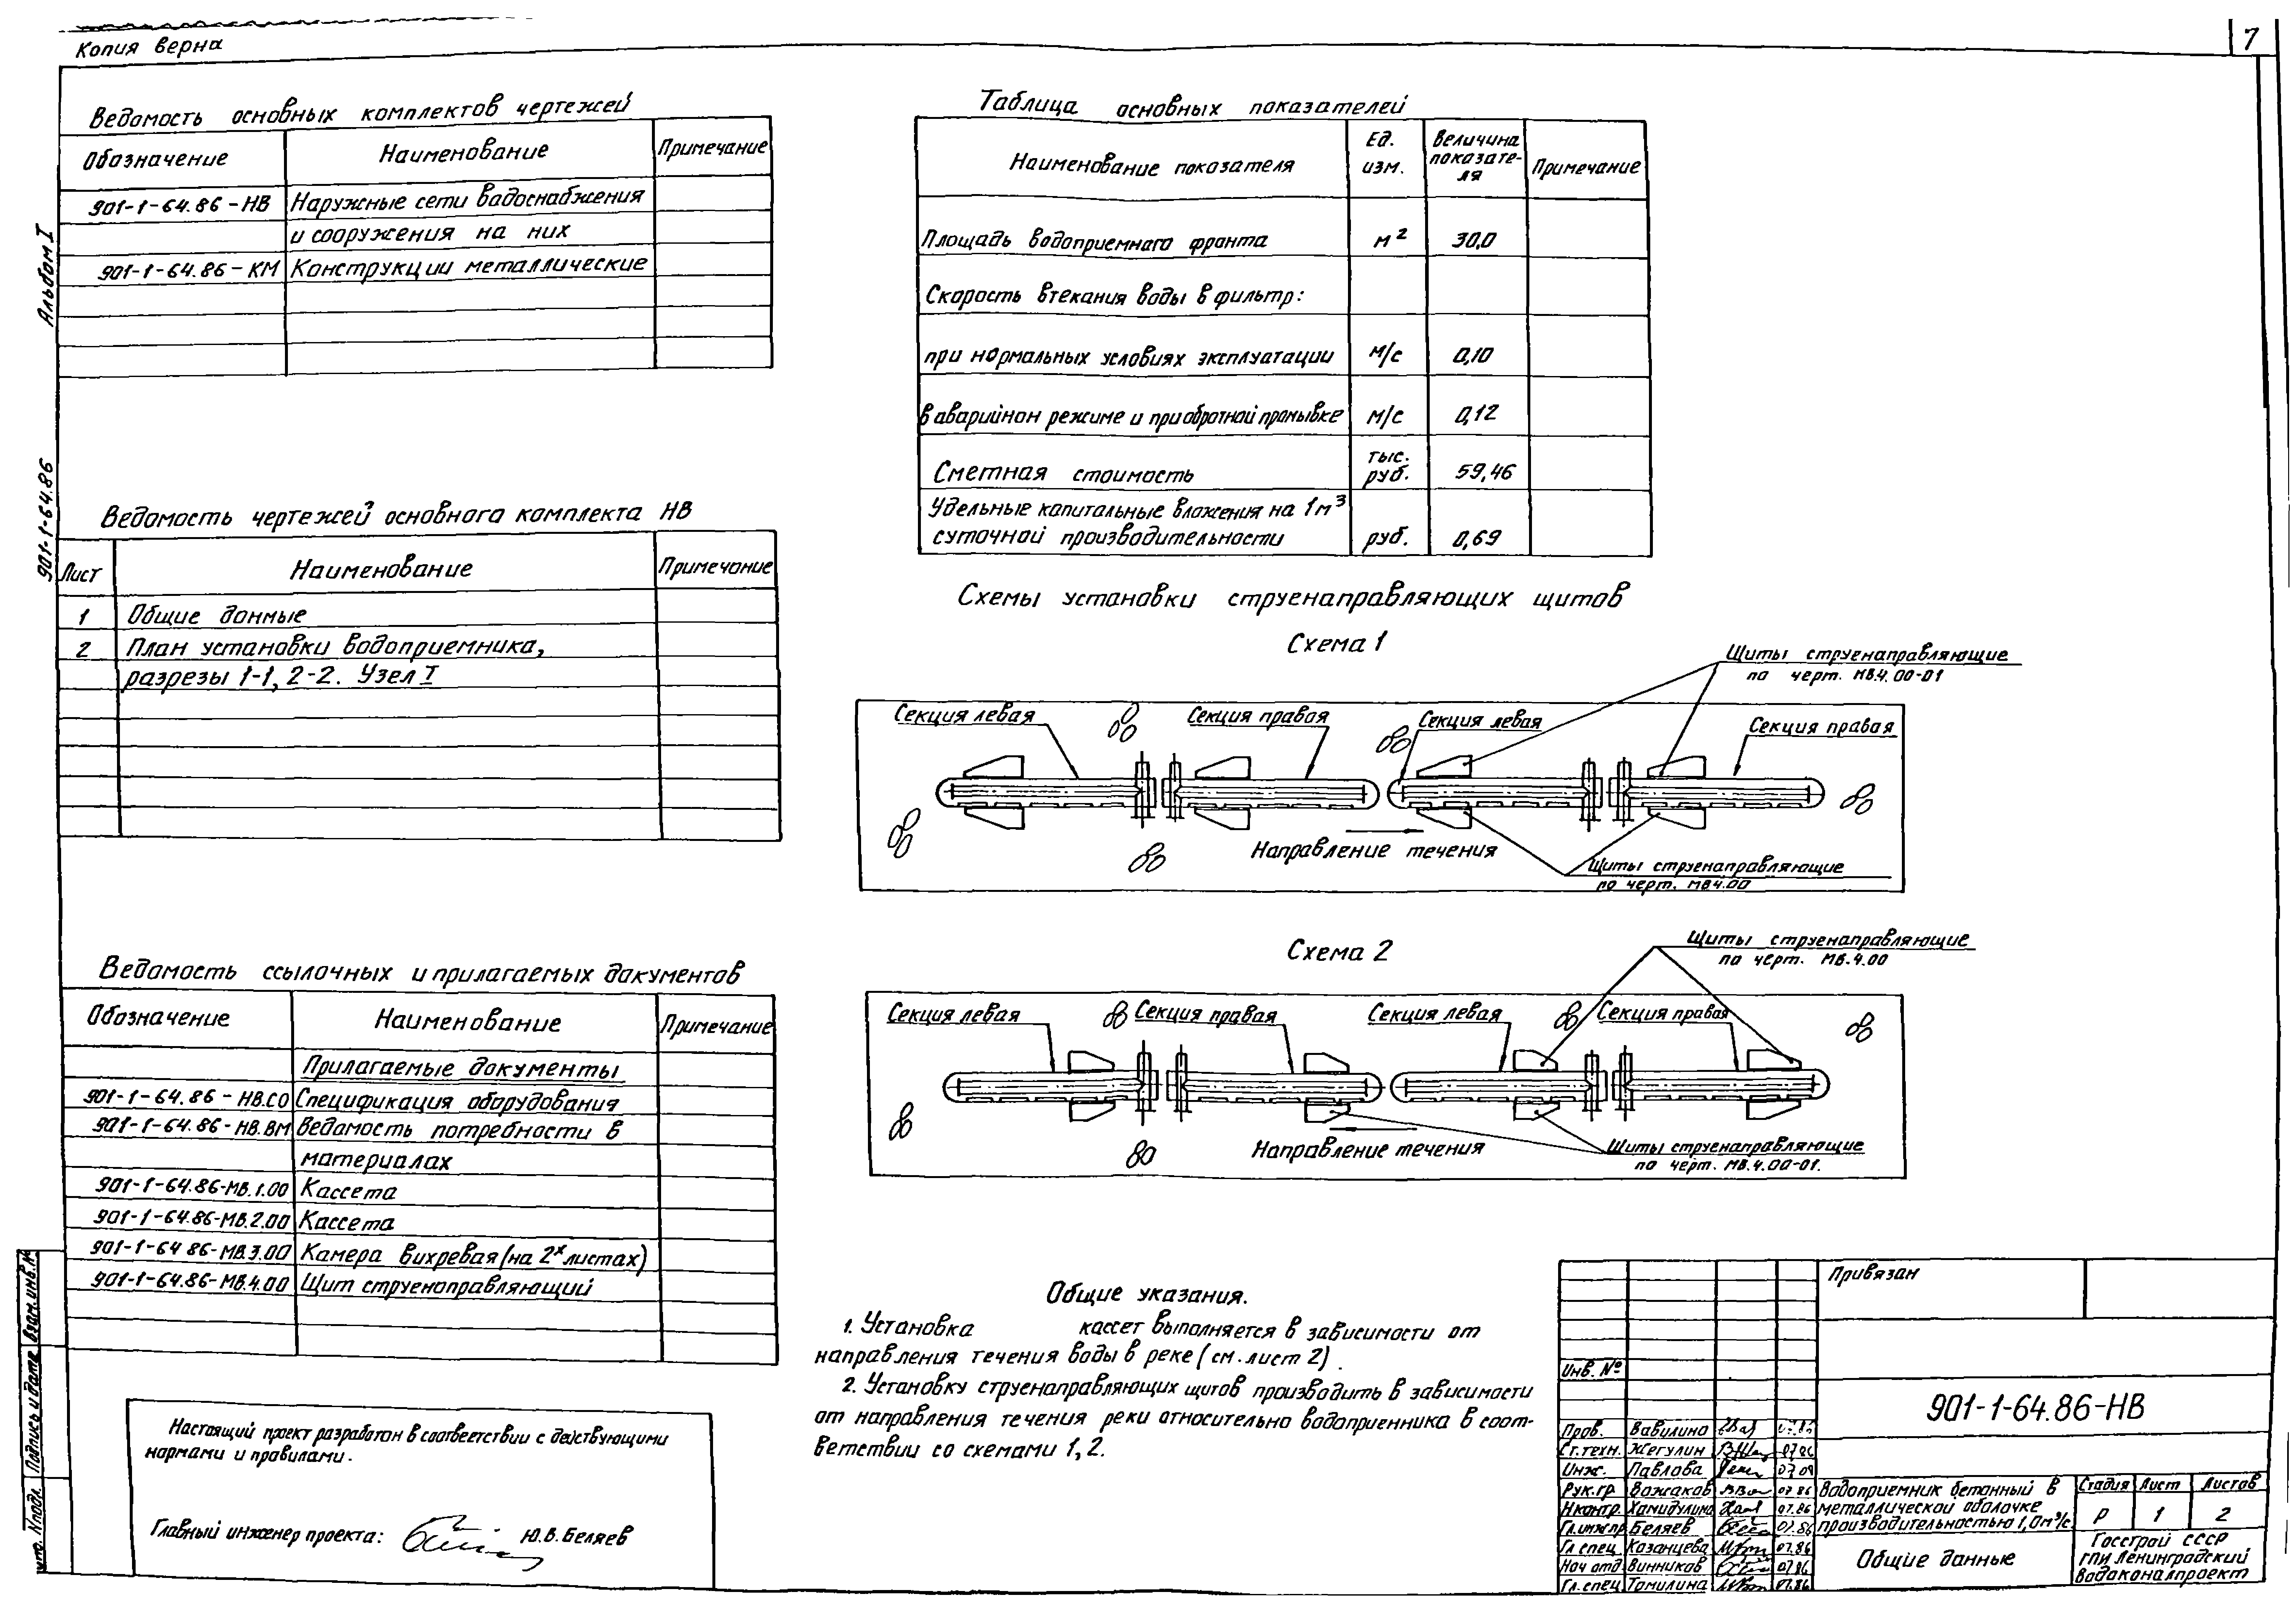 Копия верна
7
Альбом I
901-1-64.86
Ведомость основных комплектов чертежей
Обозначение Наименование Примечание
901-1-64.86-НВ Наружные сети водоснабжения
и сооружения на них
901-1-64.86-КМ Конструкции металлические
Ведомость чертежей основного комплекта НВ
Лист Наименование Примечание
1 Общие данные
2 План установки водоприемника,
разрезы 1-1, 2-2. Узел I
Ведомость ссылочных и прилагаемых документов
Обозначение Наименование Примечание
Прилагаемые документы
901-1-64.86-НВ.СО Спецификация оборудования
901-1-64.86-НВ.ВМ Ведомость потребности в
материалах
901-1-64.86-МВ.1.00 Кассета
901-1-64.86-МВ.2.00 Кассета
901-1-64 86-МВ.3.00 Камера вихревая (на 2х листах)
901-1-64.86-МВ.4.00 Щит струенаправляющий
Настоящий проект разработан в соответствии с действующими
нормами и правилами.
Главный инженер проекта: Ю.В.Беляев
Таблица основных показателей
Наименование показателя Ед. изм. Величина показате-ля Примечание
Площадь водоприемного фронта м² 30,0
Скорость втекания воды в фильтр:
при нормальных условиях эксплуатации м/с 0,10
в аварийном режиме и при обротной промывке м/с 0,12
Сметная стоимость тыс. руб. 59,46
Удельные капитальные вложения на 1м³
суточной производительности руб. 0,69
Схемы установки струенаправляющих щитов
Схема 1
Щиты струенаправляющие
по черт. МВ.4.00-01
Секция левая Секция правая Секция левая Секция правая
Направление течения
Щиты струенаправляющие
по черт. МВ4.00
Схема 2
Щиты струенаправляющие
по черт. МВ.4.00
Секция левая Секция правая Секция левая Секция правая
Направление течения
Щиты струенаправляющие
по черт. МВ.4.00-01.
Общие указания.
1. Установка кассет выполняется в зависимости от
направления течения воды в реке (см. лист 2).
2. Установку струенаправляющих щитов производить в зависимости
от направления течения реки относительно водоприемника в соот-
ветствии со схемами 1, 2.
Привязан
Инв. №
901-1-64.86-НВ
Пров. Вавилина
Ст.техн. Жегулин 07.86
Инж. Павлова
Рук.гр. Важаков 07.86
Н.контр. Хамидулина 07.86
Гл.инж.пр. Беляев 07.86
Гл спец Казанцева 07.86
Нач отд Винников 07.86
Гл.спец Томилина 07.86
Водоприемник бетонный в
металлической оболочке
производительностью 1,0м³/с
Стадия Лист Листов
Р 1 2
Общие данные
Госстрой СССР
ГПИ Ленинградский
Водоканалпроект
Взам.инв.№
Подпись и дата
Инв. №подл.